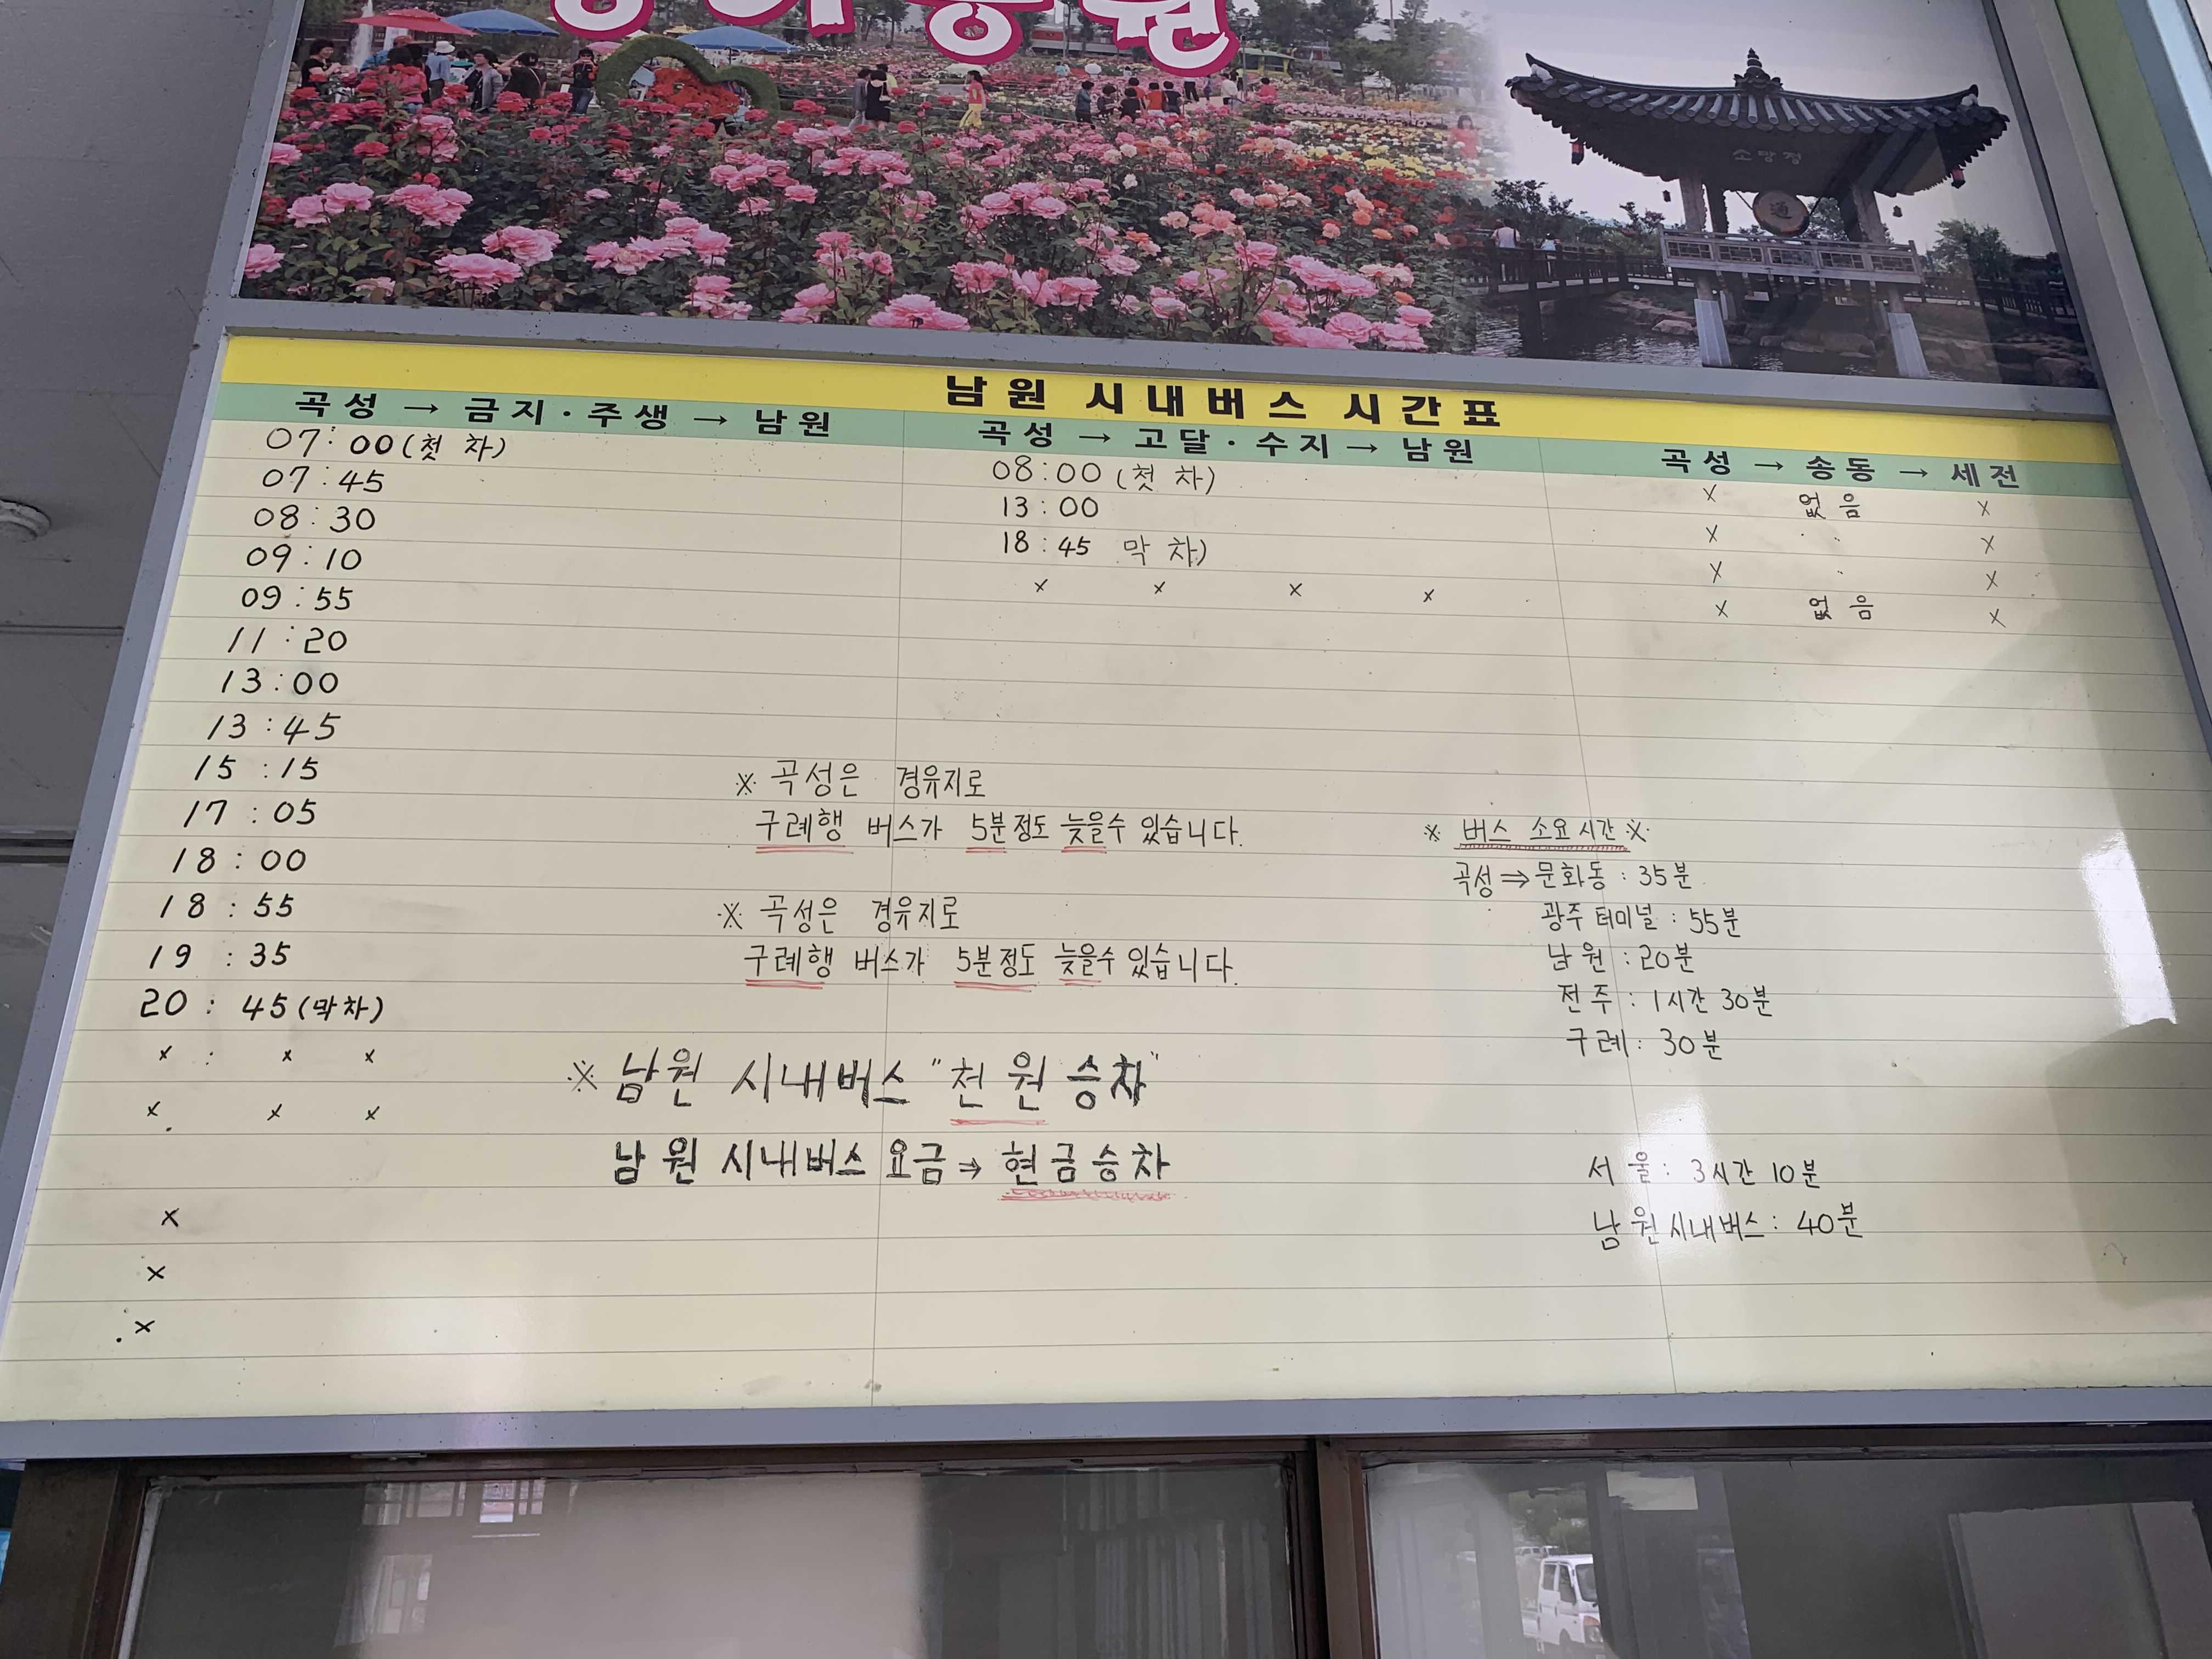 소망정
通
남원 시내버스 시간표
곡성 → 금지·주생 → 남원
07:00(첫 차)
07:45
08:30
09:10
09:55
11:20
13:00
13:45
15:15
17:05
18:00
18:55
19:35
20:45(막차)
x : x x
x x x
x
x
x
곡성 → 고달·수지 → 남원
08:00 (첫 차)
13:00
18:45 막 차)
x x x x
곡성 → 송동 → 세전
x 없음 x
x · · x
x · x
x 없음 x
※ 곡성은 경유지로
구례행 버스가 5분정도 늦을수 있습니다.
※ 곡성은 경유지로
구례행 버스가 5분정도 늦을수 있습니다.
※ 남원 시내버스 "천원 승차"
남원 시내버스 요금 ⇒ 현금승차
※ 버스 소요시간 ※
곡성 ⇒ 문화동 : 35분
광주터미널 : 55분
남원 : 20분
전주 : 1시간 30분
구례 : 30분
서울 : 3시간 10분
남원시내버스 : 40분